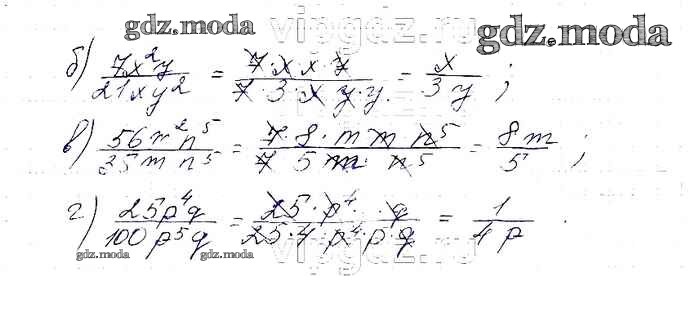 gdz.moda
vipgdz.ru
gdz.moda
б) 7x²y/21xy² = 7·x·x·y/7·3·x·y·y = x/3y ;
в) 56m²n⁵/35mn⁵ = 7·8·m·m·n⁵/7·5·m·n⁵ = 8m/5 ;
г) 25p⁴q/100p⁵q = 25·p⁴·q/25·4·p⁴·p·q = 1/4p .
gdz.moda
gdz.moda
vipgdz.ru